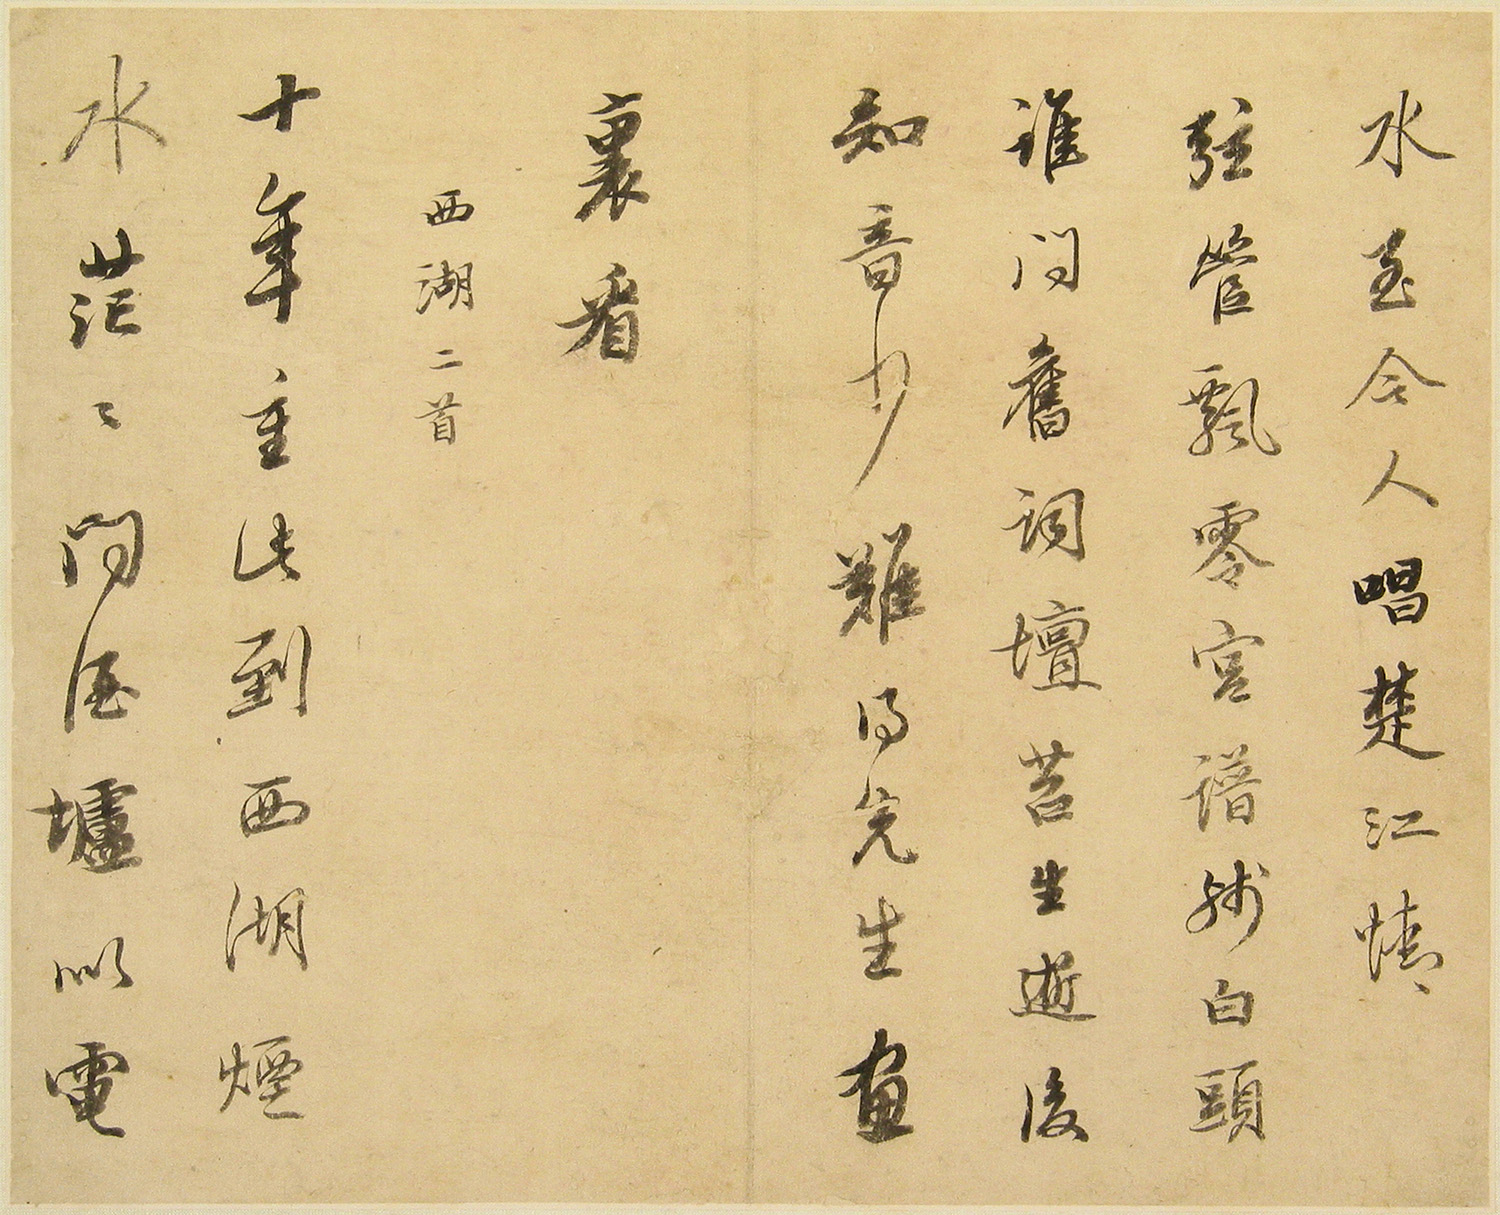 水至今人唱楚江情
弦管飄零宮譜殘白頭
誰問舊詞壇苕生逝後
知音少難得先生畫
裏看
西湖二首
十年重此到西湖煙
水茫〻問酒壚似電